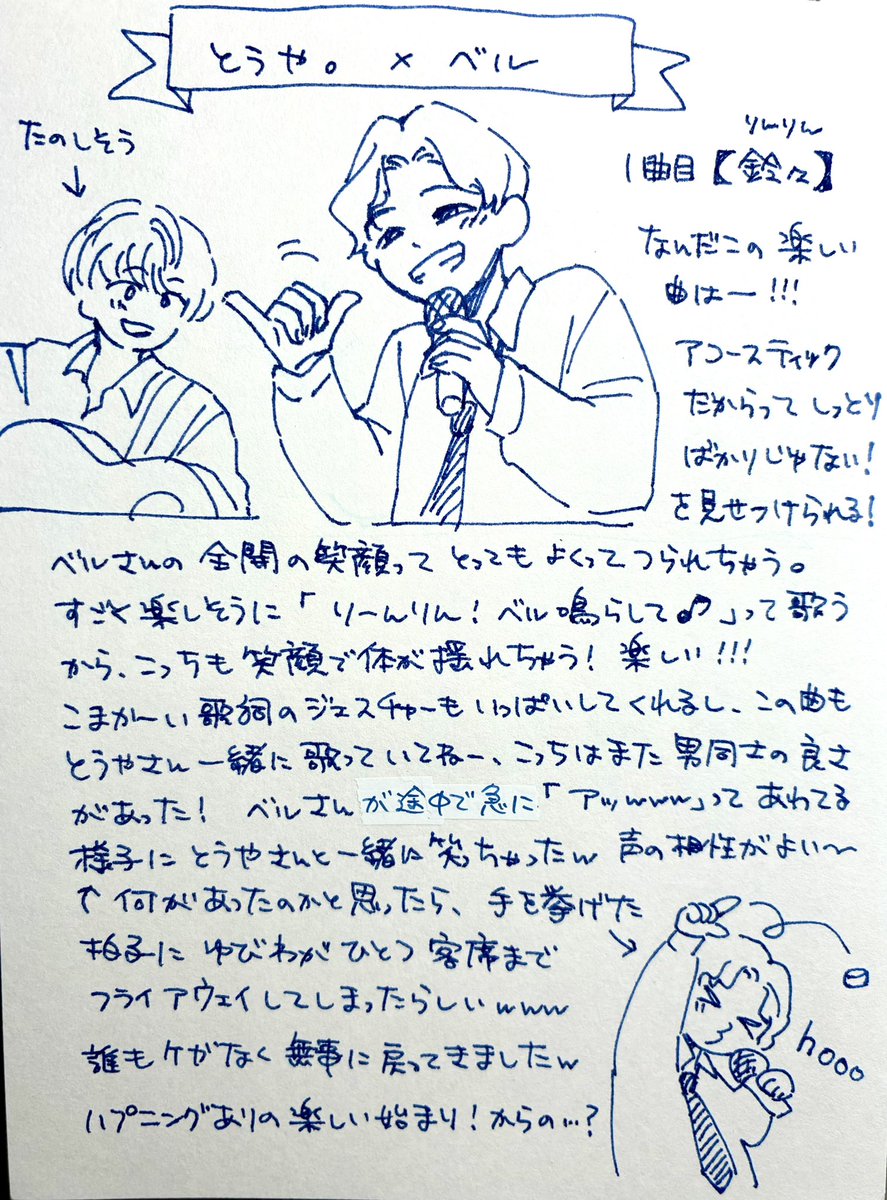 とうや。 × ベル
たのしそう
↓
りんりん
1曲目【鈴々】
なんだこの楽しい
曲はー!!!
アコースティック
だからってしっとり
ばかりじゃない!
を見せつけられる!
ベルさんの全開の笑顔ってとってもよくってつられちゃう。
すごく楽しそうに「りーんりん!ベル鳴らして♪」って歌う
から、こっちも笑顔で体が揺れちゃう! 楽しい!!!
こまかーい歌詞のジェスチャーもいっぱいしてくれるし、この曲も
とうやさん一緒に歌っていてねー、こっちはまた男同士の良さ
があった! ベルさんが途中で急に「アッwww」ってあわてる
様子にとうやさんと一緒に笑っちゃったw 声の相性がよい〜
↑何があったのかと思ったら、手を挙げた
拍子にゆびわがひとつ客席まで
フライアウェイしてしまったらしいwww
誰もケガなく無事に戻ってきましたw
ハプニングありの楽しい始まり!からの…?
hooo